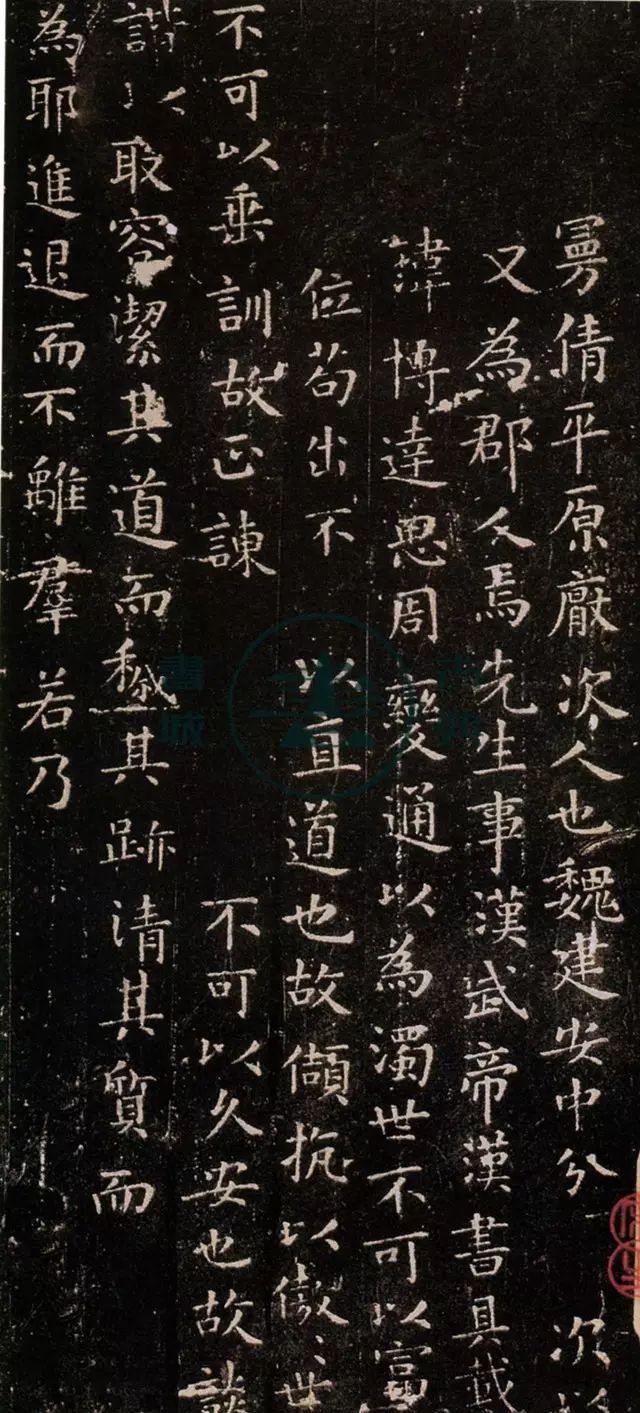 曼倩平原厭次人也魏建安中分 次以
又為郡人焉先生事漢武帝漢書具載
瑋博達思周變通以為濁世不可以富
位苟出不 以直道也故頡抗以傲〻世
不可以垂訓故正諫 不可以久安也故談
諧以取容潔其道而穢其跡清其質而
為耶進退而不離羣若乃